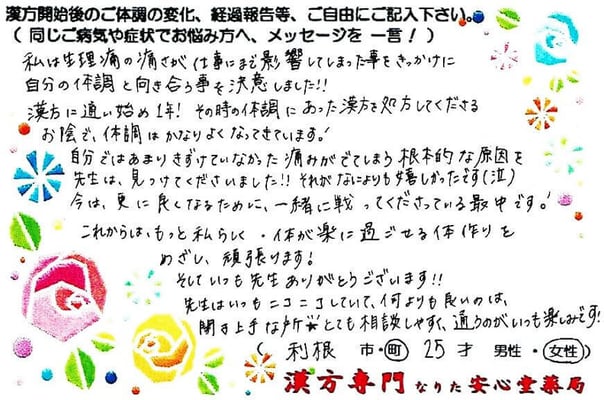 漢方開始後のご体調の変化、経過報告等、ご自由にご記入下さい。
（ 同じご病気や症状でお悩み方へ、メッセージを 一言！）
私は生理痛の痛さが仕事にまで影響してしまった事をきっかけに
自分の体調と向き合う事を決意しました!!
漢方に通い始め1年! その時の体調にあった漢方を処方してくださる
お陰で、体調はかなりよくなってきています!
自分ではあまりきずけていなかった痛みがでてしまう根本的な原因を
先生は、見つけてくださいました!! それがなによりも嬉しかったです(泣)
今は、更に良くなるために、一緒に戦ってくださっている最中です!
これからは、もっと私らしく・体が楽に過ごせる体作りを
めざし、頑張ります!
そしていつも先生ありがとうございます!!
先生はいつもニコニコしていて、何よりも良いのは、
聞き上手な所☆とても相談しやすく、通うのがいつも楽しみです!
（ 利根 市・町 25才 男性・女性）
漢方専門 なりた 安心堂薬局